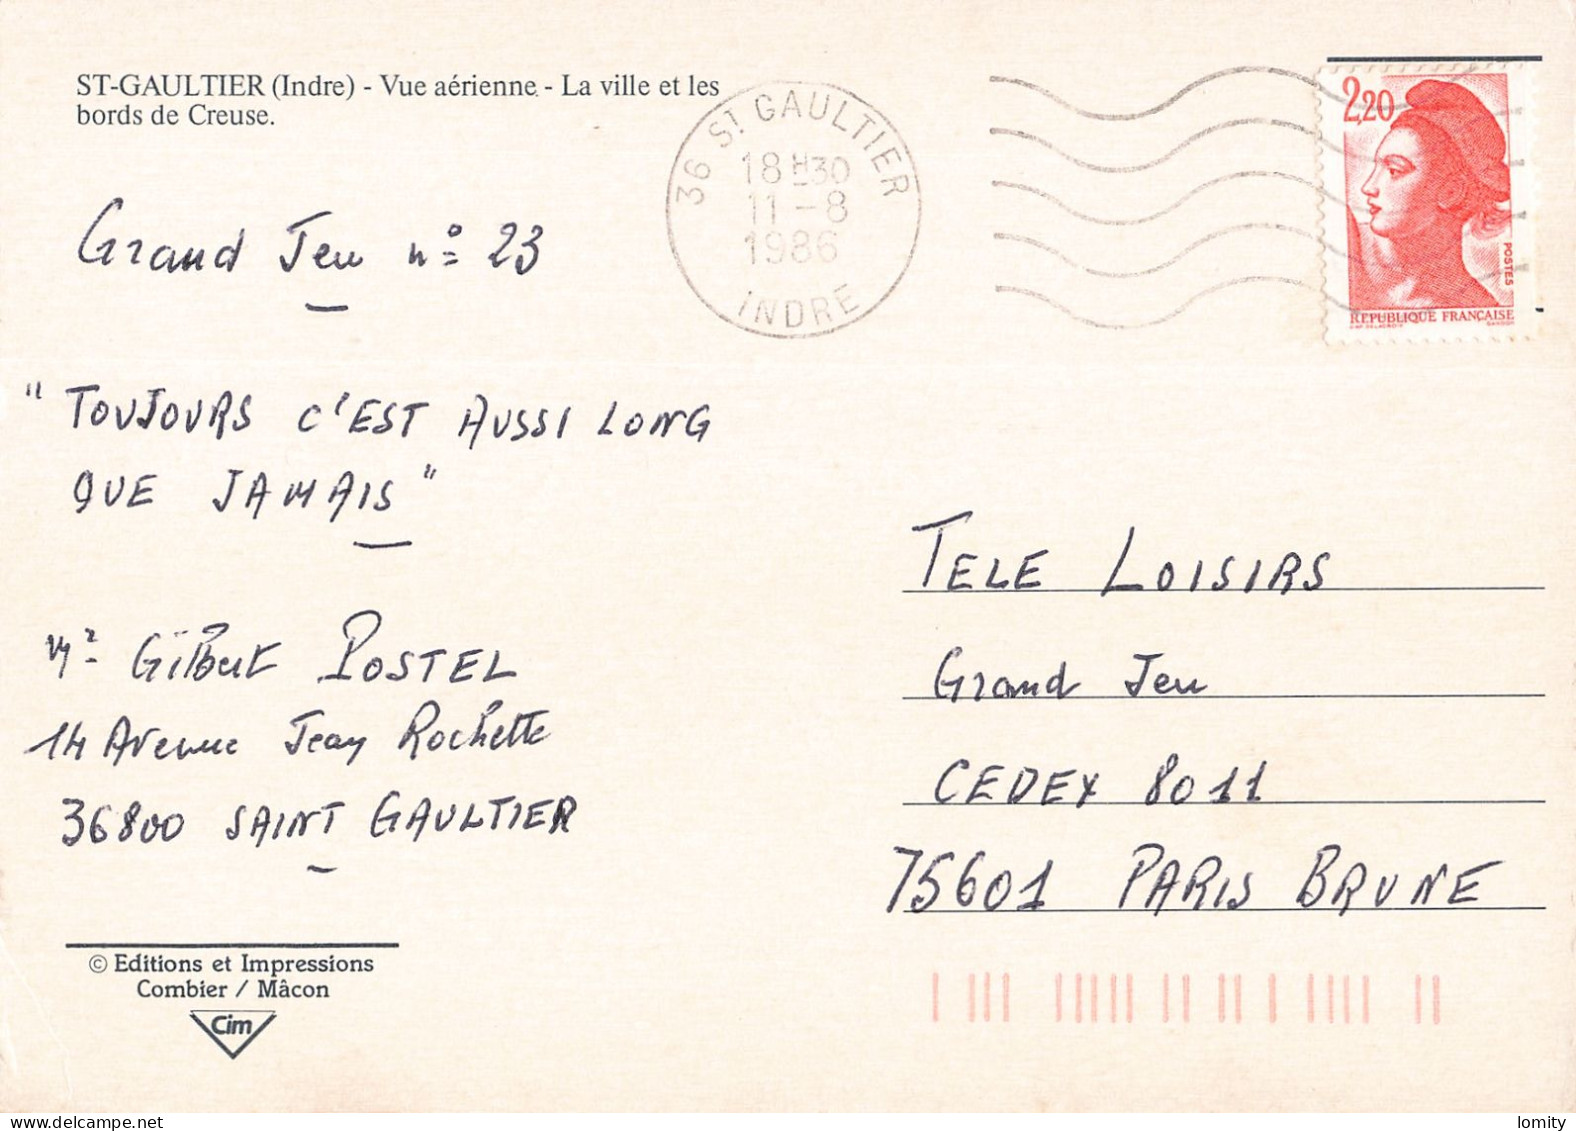 ST-GAULTIER (Indre) - Vue aérienne - La ville et les
bords de Creuse.
36 ST GAULTIER
18 H30
11-8
1986
INDRE
2,20
POSTES
REPUBLIQUE FRANÇAISE
D'AP. DELACROIX GANDON
Grand Jeu n° 23
"TOUJOURS C'EST AUSSI LONG
QUE JAMAIS"
Mr Gilbert POSTEL
14 Avenue Jean Rochette
36800 SAINT GAULTIER
TELE LOISIRS
Grand Jeu
CEDEX 8011
75601 PARIS BRUNE
© Editions et Impressions
Combier / Mâcon
Cim
lomity